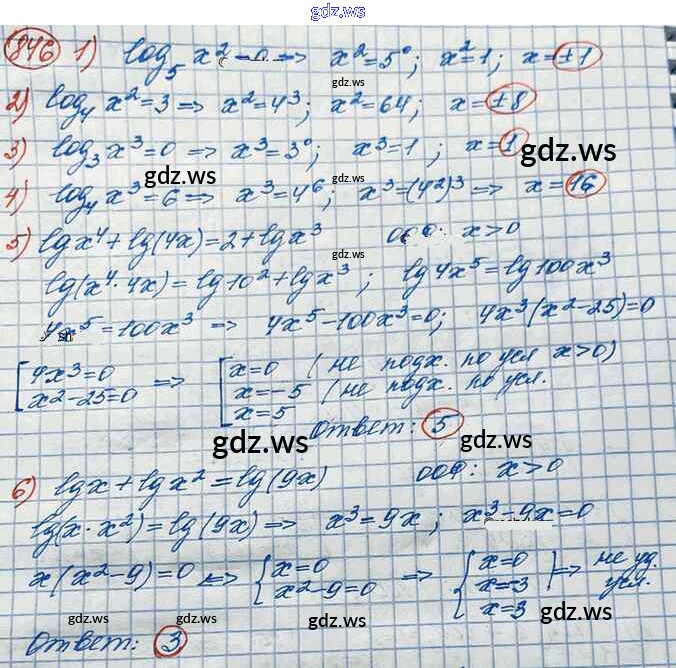 gdz.ws
846 1) log₅ x² = 0 => x² = 5⁰; x² = 1; x = ±1
gdz.ws
2) log₄ x² = 3 => x² = 4³; x² = 64; x = ±8
3) log₃ x³ = 0 => x³ = 3⁰; x³ = 1; x = 1
gdz.ws gdz.ws gdz.ws
4) log₄ x³ = 6 => x³ = 4⁶; x³ = (4²)³ => x = 16
5) lg x⁴ + lg(4x) = 2 + lg x³ ООФ: x > 0
gdz.ws
lg(x⁴ · 4x) = lg 10² + lg x³; lg 4x⁵ = lg 100x³
4x⁵ = 100x³ => 4x⁵ - 100x³ = 0; 4x³(x² - 25) = 0
[4x³ = 0 => [x = 0 (не подх. по усл x > 0)
x² - 25 = 0 x = -5 (не подх. по усл.
x = 5
Ответ: 5
gdz.ws gdz.ws
6) lg x + lg x² = lg(9x) ООФ: x > 0
lg(x · x²) = lg(9x) => x³ = 9x; x³ - 9x = 0
x(x² - 9) = 0 <=> {x = 0 => {x = 0 } => не уд.
x² - 9 = 0 x = -3 усл.
x = 3
gdz.ws gdz.ws gdz.ws gdz.ws
Ответ: 3